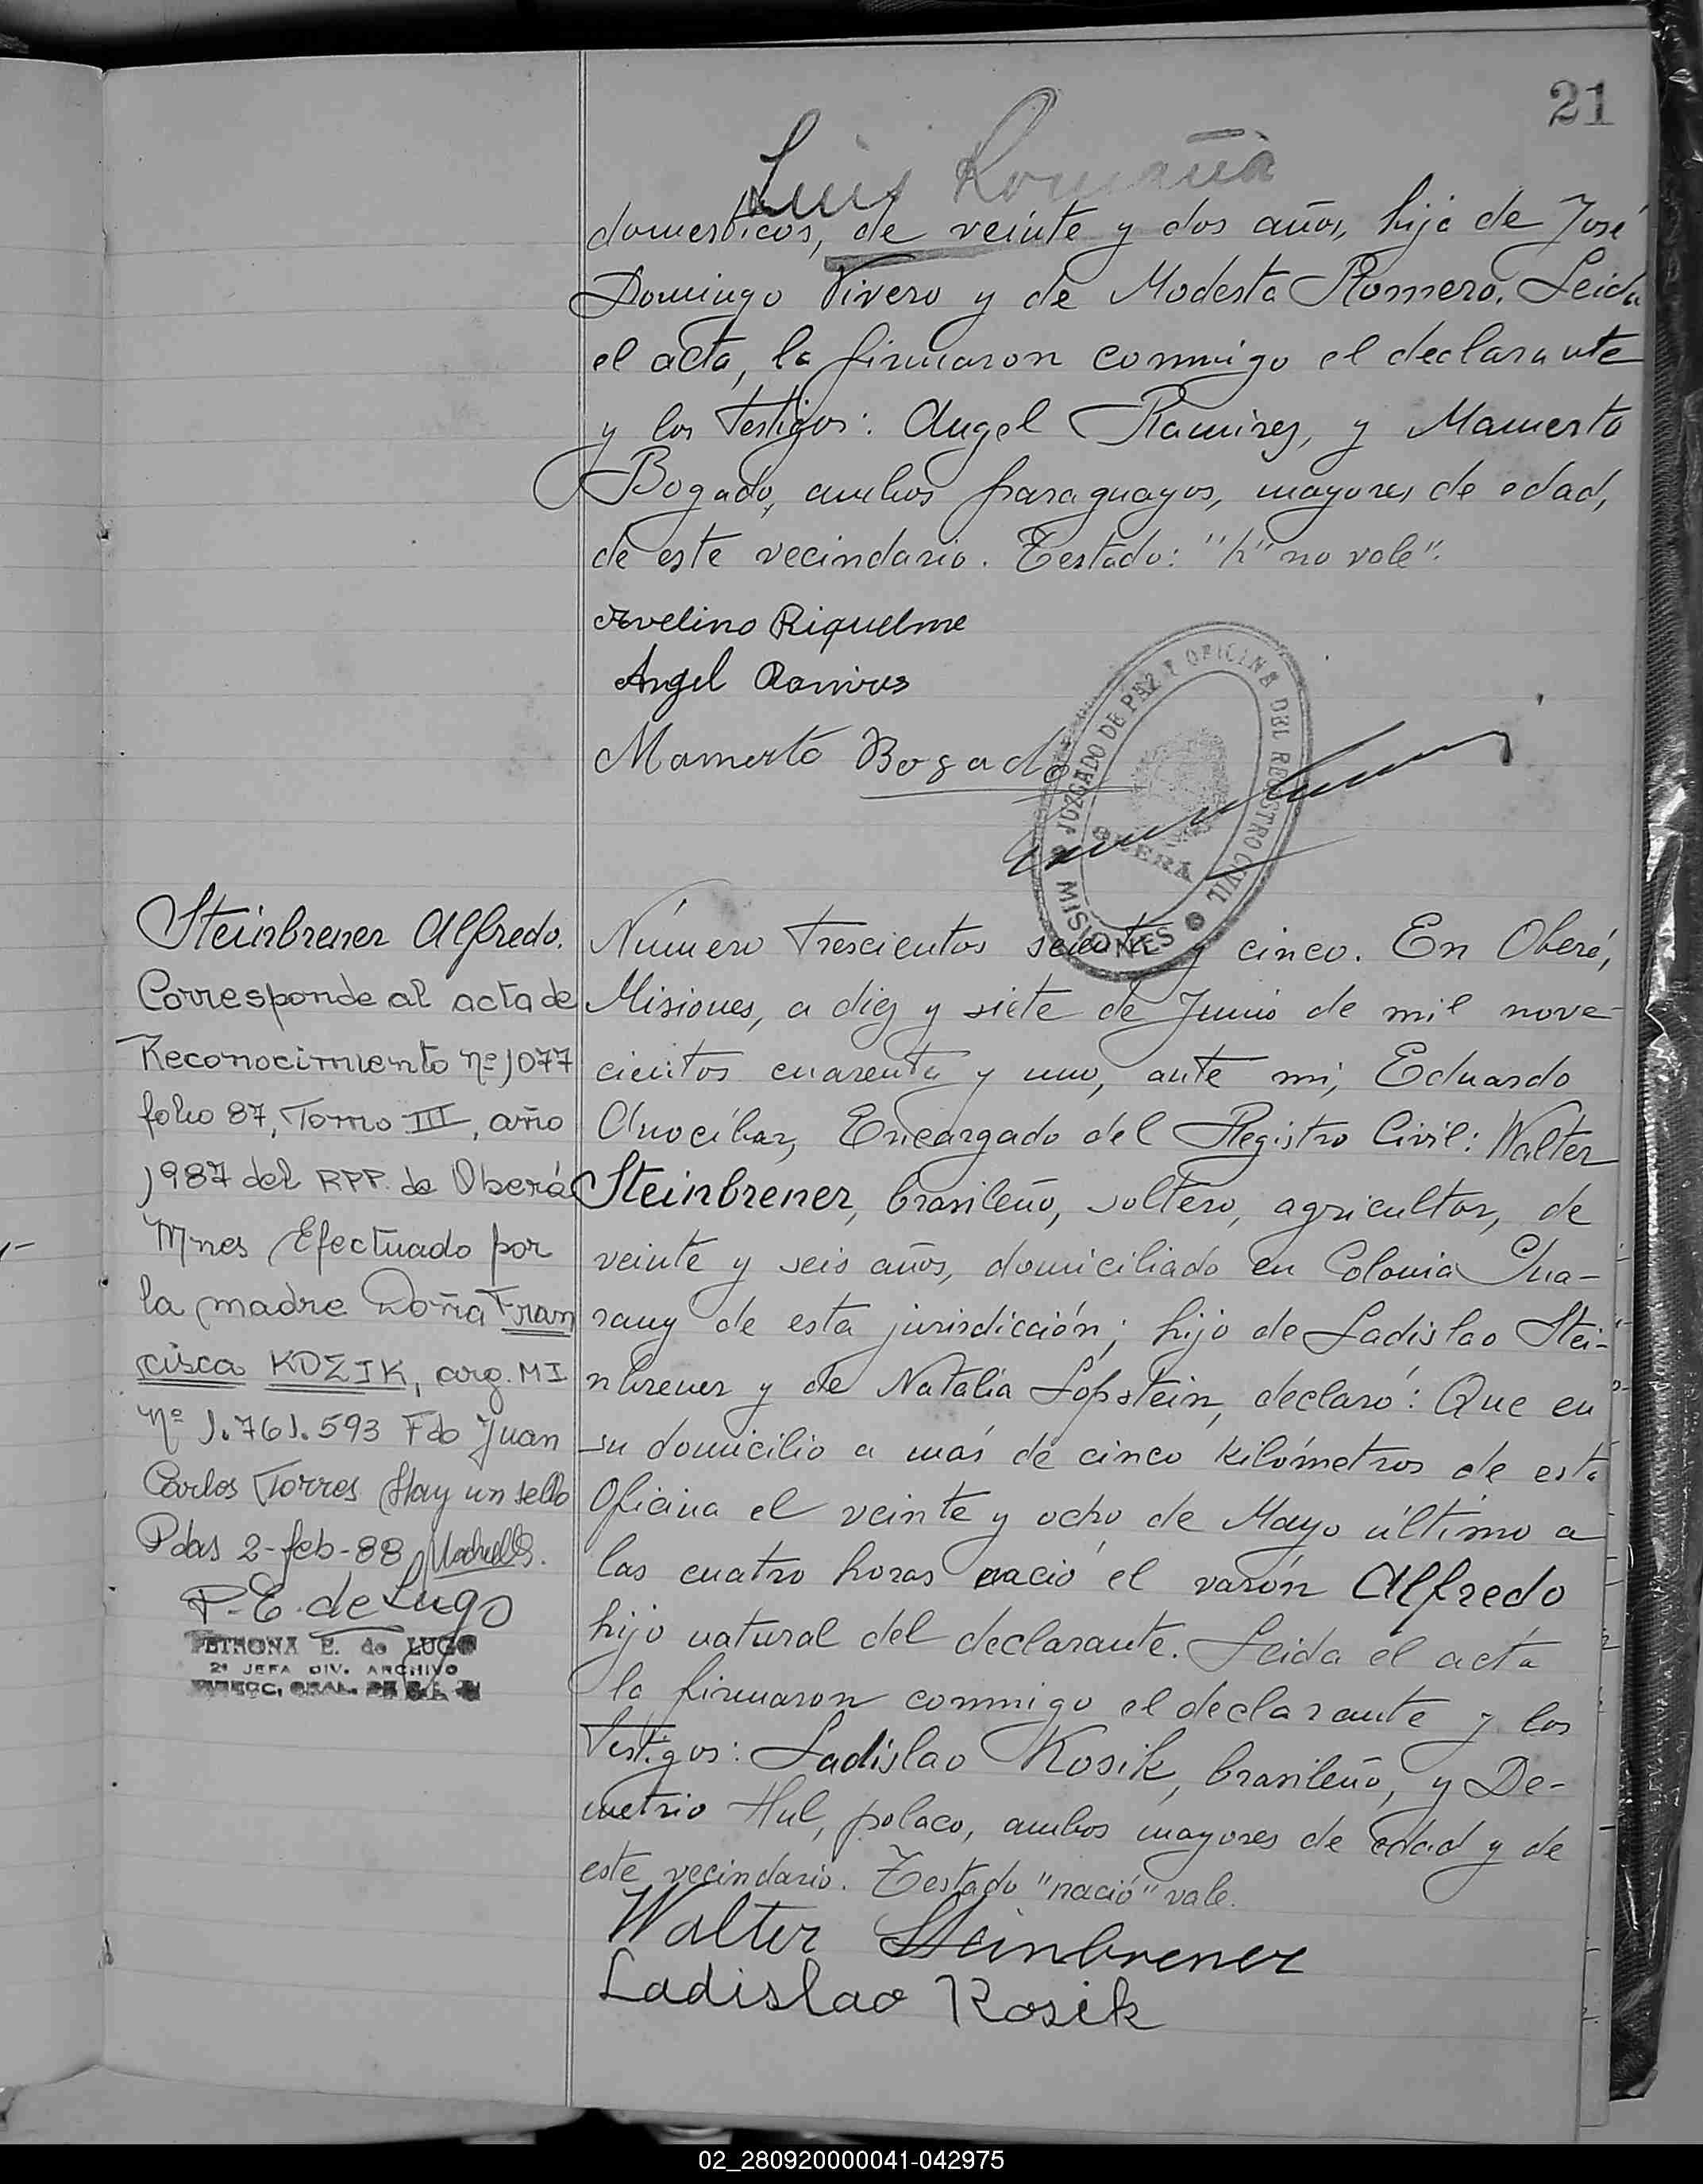 21
Luis Romañá
domesticos, de veinte y dos años, hija de José
Domingo Vivero y de Modesta Romero. Leida
el acta, la firmaron conmigo el declarante
y los testigos: Angel Ramirez, y Mamerto
Bogado, ambos paraguayos, mayores de edad,
de este vecindario. Testado: "h" no vale".
Avelino Riquelme
Angel Ramires
Mamerto Bogado
JUZGADO DE PAZ Y OFICINA DEL REGISTRO CIVIL
OBERÁ
MISIONES
Steinbrener Alfredo.
Corresponde al acta de
Reconocimiento Nº 1077
folio 87, Tomo III, año
1987 del RPP. de Oberá
Mnes Efectuado por
la madre Doña Fran
cisca KOZIK, arg. MI
Nº 1.761.593 Fdo Juan
Carlos Torres Hay un sello
Pdas 2-feb-88
P. E. de Lugo
PETRONA E. de LUGO
2ª JEFA DIV. ARCHIVO
DIRECC. GRAL. DE
Número trescientos y cinco. En Oberá,
Misiones, a diez y siete de Junio de mil nove-
cientos cuarenta y uno, ante mi, Eduardo
Anocíbar, Encargado del Registro Civil: Walter
Steinbrener, brasileño, soltero, agricultor, de
veinte y seis años, domiciliado en Colonia Gua-
rany de esta jurisdicción; hijo de Ladislao Stei-
nbrener y de Natalia Lopstein, declaró: Que en
su domicilio a más de cinco kilómetros de esta
Oficina el veinte y ocho de Mayo último a
las cuatro horas nació el varón Alfredo
hijo natural del declarante. Leida el acta
la firmaron conmigo el declarante y los
testigos: Ladislao Kosik, brasileño, y De-
metrio Hul, polaco, ambos mayores de edad y de
este vecindario. Testado "nació" vale.
Walter Steinbrener
Ladislao Kosik
02_280920000041-042975